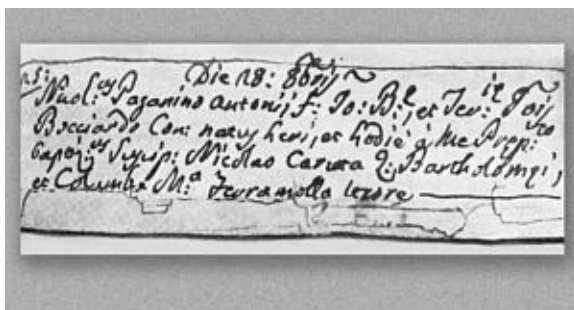 Die 28: 8bris
Nicol:us Paganino Antonij f: Jo: B:e, et Ter:
Bocciardo Con: natus heri, et hodie à me Prep:to
bapt: Suscip: Nicolao Caruta Q: Bartholomei,
et Columba M:a Ferramolla uxore